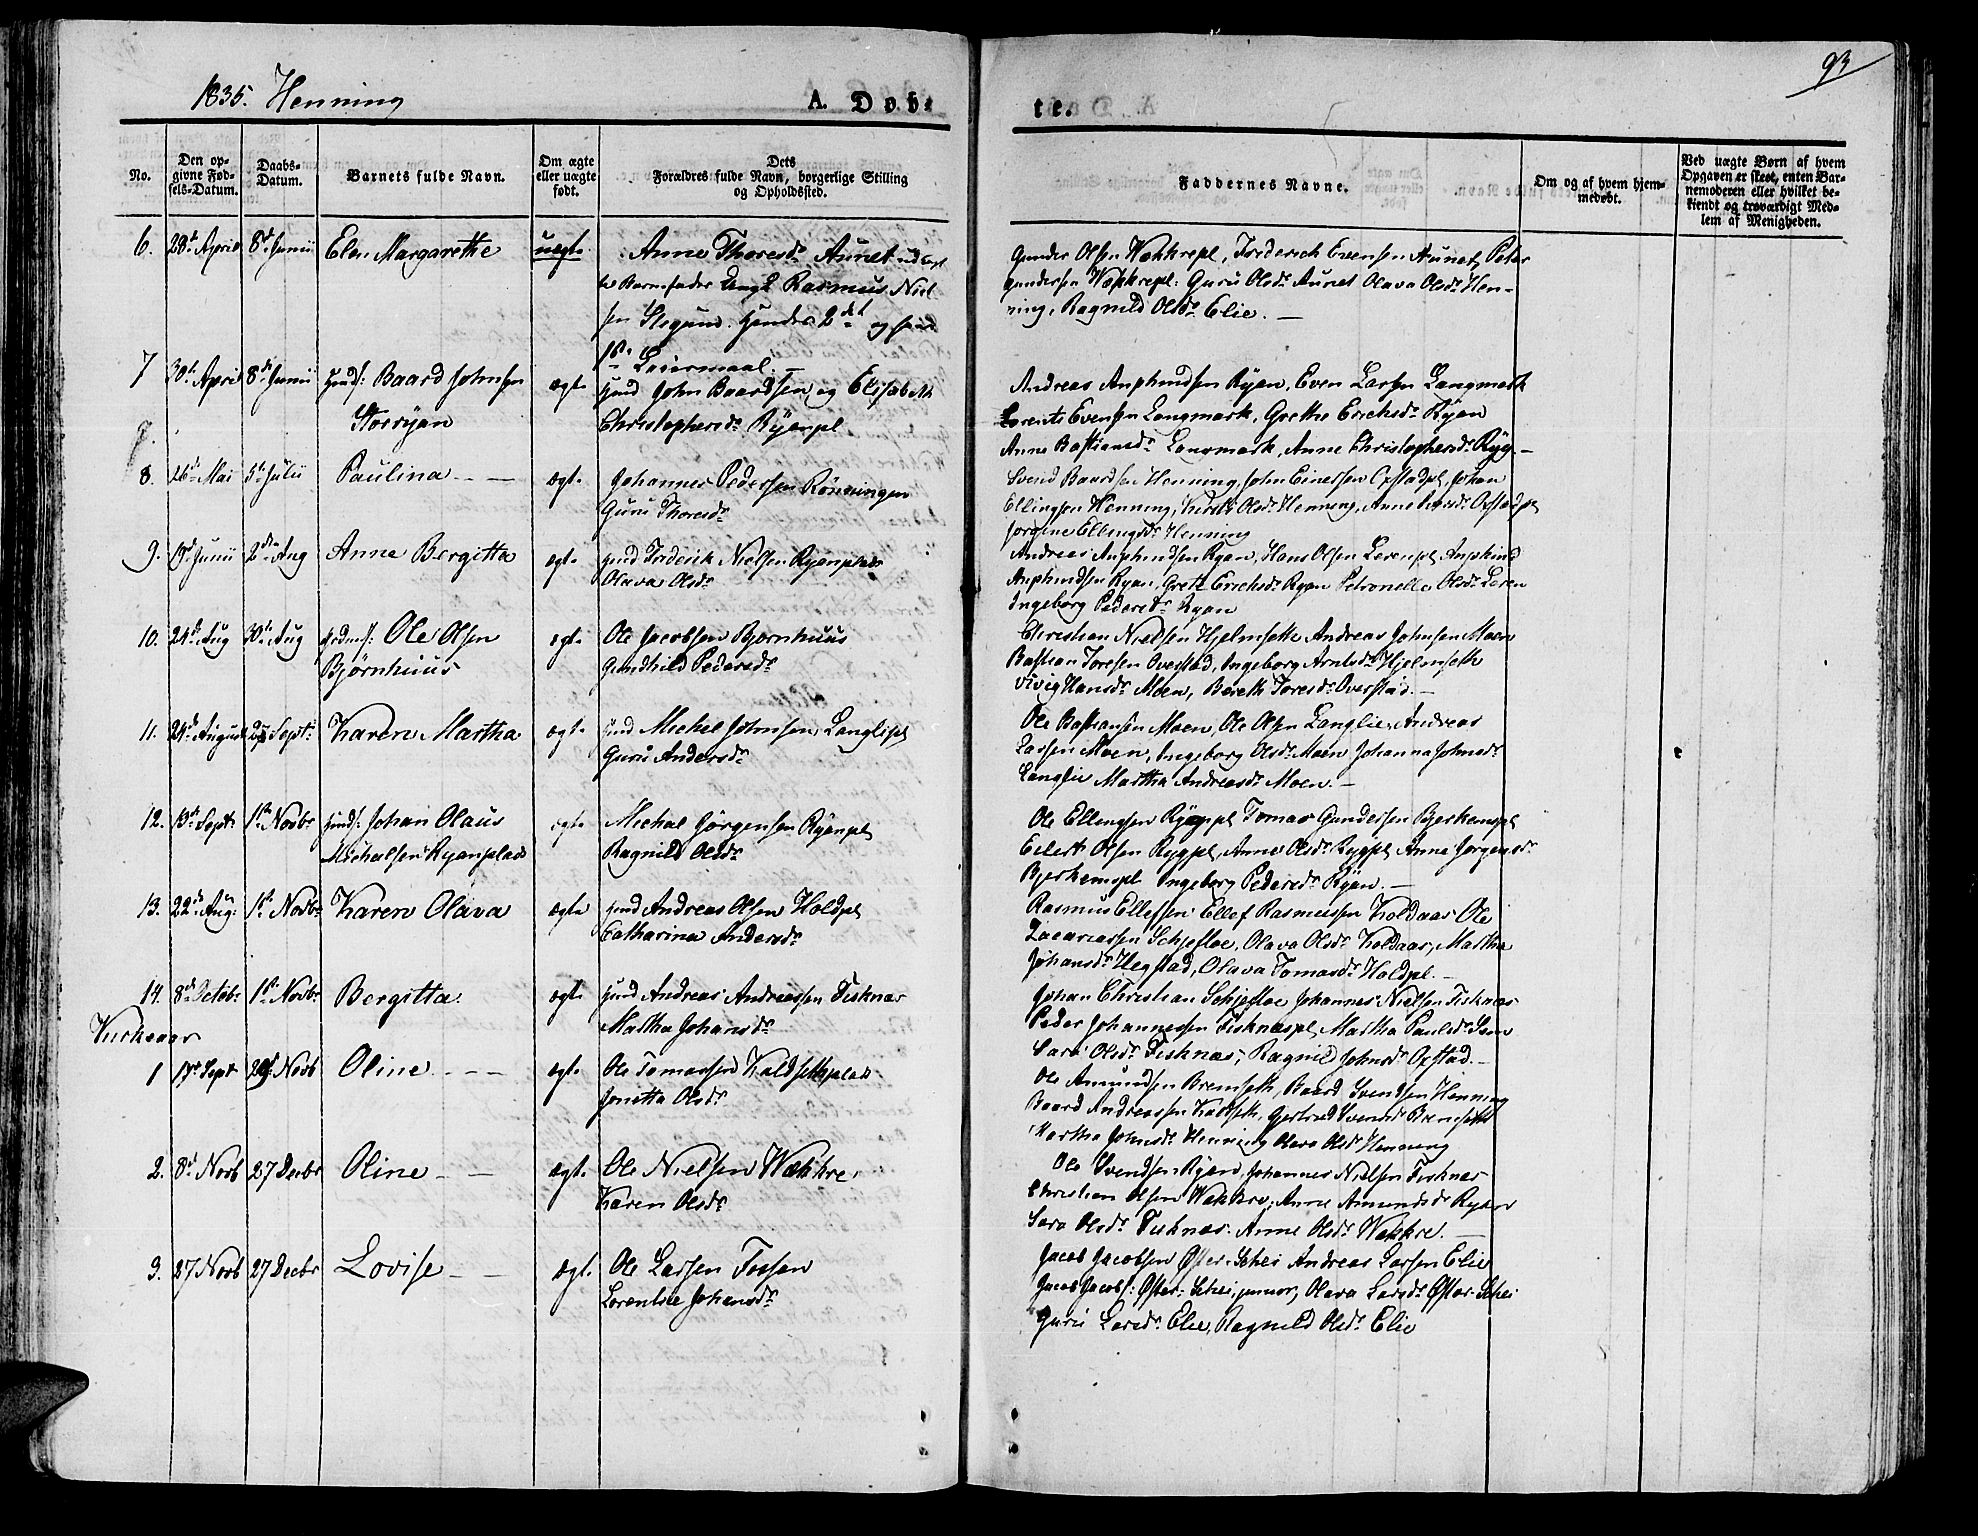 1835. Henning
A. Døb-
te.
93
No.
Den op-
givne Fød-
sels-Datum.
Daabs-
Datum.
Barnets fulde Navn.
Om ægte
eller uægte
født.
Dets
Forældres fulde Navn, borgerlige Stilling
og Opholdssted.
Faddernes Navne.
Om og af hvem hjem-
medøbt.
Ved uægte Børn af hvem
Opgaven er skeet, enten Bar-
nemoderen eller hvilket be-
kiendt og troværdigt Med-
lem af Menigheden.
6. 28de April 8de Junii Elen Margarethe uægt. Anne Thoresdr Aunet udlagt
til Barnefader Ungk Rasmus Niel
sen Hendes 2det og hans
1ste Leiermaal. —
Gunder Olsen Wækrepl, Frederich Evensen Aunet, Peter
Gundersen Wækrepl. Guru Olsdr Aunet Olava Olsdr Hen-
ning, Ragnild Olsdr Elie. —
7 30te April 8de Junii Huusf: Baard Johnsen ægt. Huusmd John Baardsen og Elisabeth
Storryan Christophersdr Rÿanpl
Andreas Amphindsen Rÿan, Even Larsen Langmark
Lorents Evensen Langmark, Grethe Erichsdr Rÿan
Anne Bastiansdr Langmark, Anne Christophersdr Rÿg. —
8. 26de Mai 5te Julii Paulina — — ægt. Johannes Pedersen Rönningen
Guru Thoresdr
Svend Baardsen Henning, John Einersen Opstadpl, Johan
Ellingsen Henning, Olsdr Henning, Anne Larsdr Opstadpl
Jorgine Ellingsdr Henning
9. 19de Junii 2den Aug Anne Bergitta ægt. Huusmd Frederik Nielsen Ryanplads
Olava Olsdr
Andreas Amphindsen Ryan, Hans Olsen Lerenpl, Amphind
Amphindsen Ryan, Grethe Erichsdr Ryan Petronelle Olsdr Leren
Ingeborg Pedersdr Ryan
10. 24de Aug 30te Aug hjemdf: Ole Olsen ægt. Ole Jacobsen Bjornhuus
Björnhuus Gundhild Pedersdr
Christian Nielsen Hjelmseth Andreas Johnsen Moen
Bastian Toresen Overstad, Ingeborg Arntsdr Hjelmseth
Vivig Hansdr Moen, Bereth Toresdr Overstad. —
11. 24de August Septr Karen Martha ægt. Huusmd Michel Johnsen Langlipl
Guru Andersdr
Ole Bastiansen Moen, Ole Olsen Langlie, Andreas
Larsen Moen, Ingeborg Olsdr Moen Johanna Johnsdr
Langlie Martha Andreasdr Moen. —
12. 13de Septr 1ste Novbr Huusf: Johan Olaus ægt. Michal Jörgensen Rÿanpl
Michelsen Ryanplads Ragnild Olsdr
Ole Ellingsen Rÿgpl Tomas Gundersen Bjerkempl
Eilert Olsen Rygpl, Anne Olsdr Rygpl Anne Jorgensdr
Bjerkempl Ingeborg Pedersdr Rÿan. —
13. 22de Aug. 1ste Novbr Karen Olava ægte Huusmd Andreas Olsen Holdpl
Catharina Andersdr
Rasmus Ellefsen Ellef Rasmussen Koldaas Ole
Zacariassen Schjefloe, Olava Olsdr Koldaas, Martha
Johansdr Hegstad, Olava Tomasdr Holdpl. —
14. 8de Octobr 1ste Novbr Bergitta ægt. Huusmd Andreas Andreassen Fisknæs
Martha Johansdr
Johan Christian Schjefloe Johannes Nielsen Fisknæs
Peder Johannessen Fisknæspl, Martha Paulsdr Sem
Sara Olsdr Fisknæs, Ragnild Johnsdr Opstad. —
Kirkeaar
1 Sept Novb Oline — — — ægt. Ole Tomassen Kaldsethplads
Jonetta Olsdr
Ole Amundsen Bremseth, Baard Svendsen Henning
Baard Andreassen Kaldseth, Gjertrud Svendsdr Bremseth
Martha Johnsdr Henning Olava Olsdr Henning
2. 8de Novb 27 Decbr Oline — — ægt. Ole Nielsen Wækkre,
Karen Olsdr
Ole Svendsen Rÿan, Johannes Nielsen Fisknæs
Christian Olsen Wækkre, Anne Amundsdr Ryan
Sara Olsdr Fisknæs. Anne Olsdr Wækkre. —
3. 27 Novb 27 Decbr Lovise — — ægt. Ole Larsen Fossen
Lorentse Johansdr
Jacob Jacobsen Öster-Schei Andreas Larsen Elie
Jacob Jacobs: Öster-Schei, junior, Olava Larsdr Öster-Schei
Guru Larsdr Elie, Ragnild Olsdr Elie